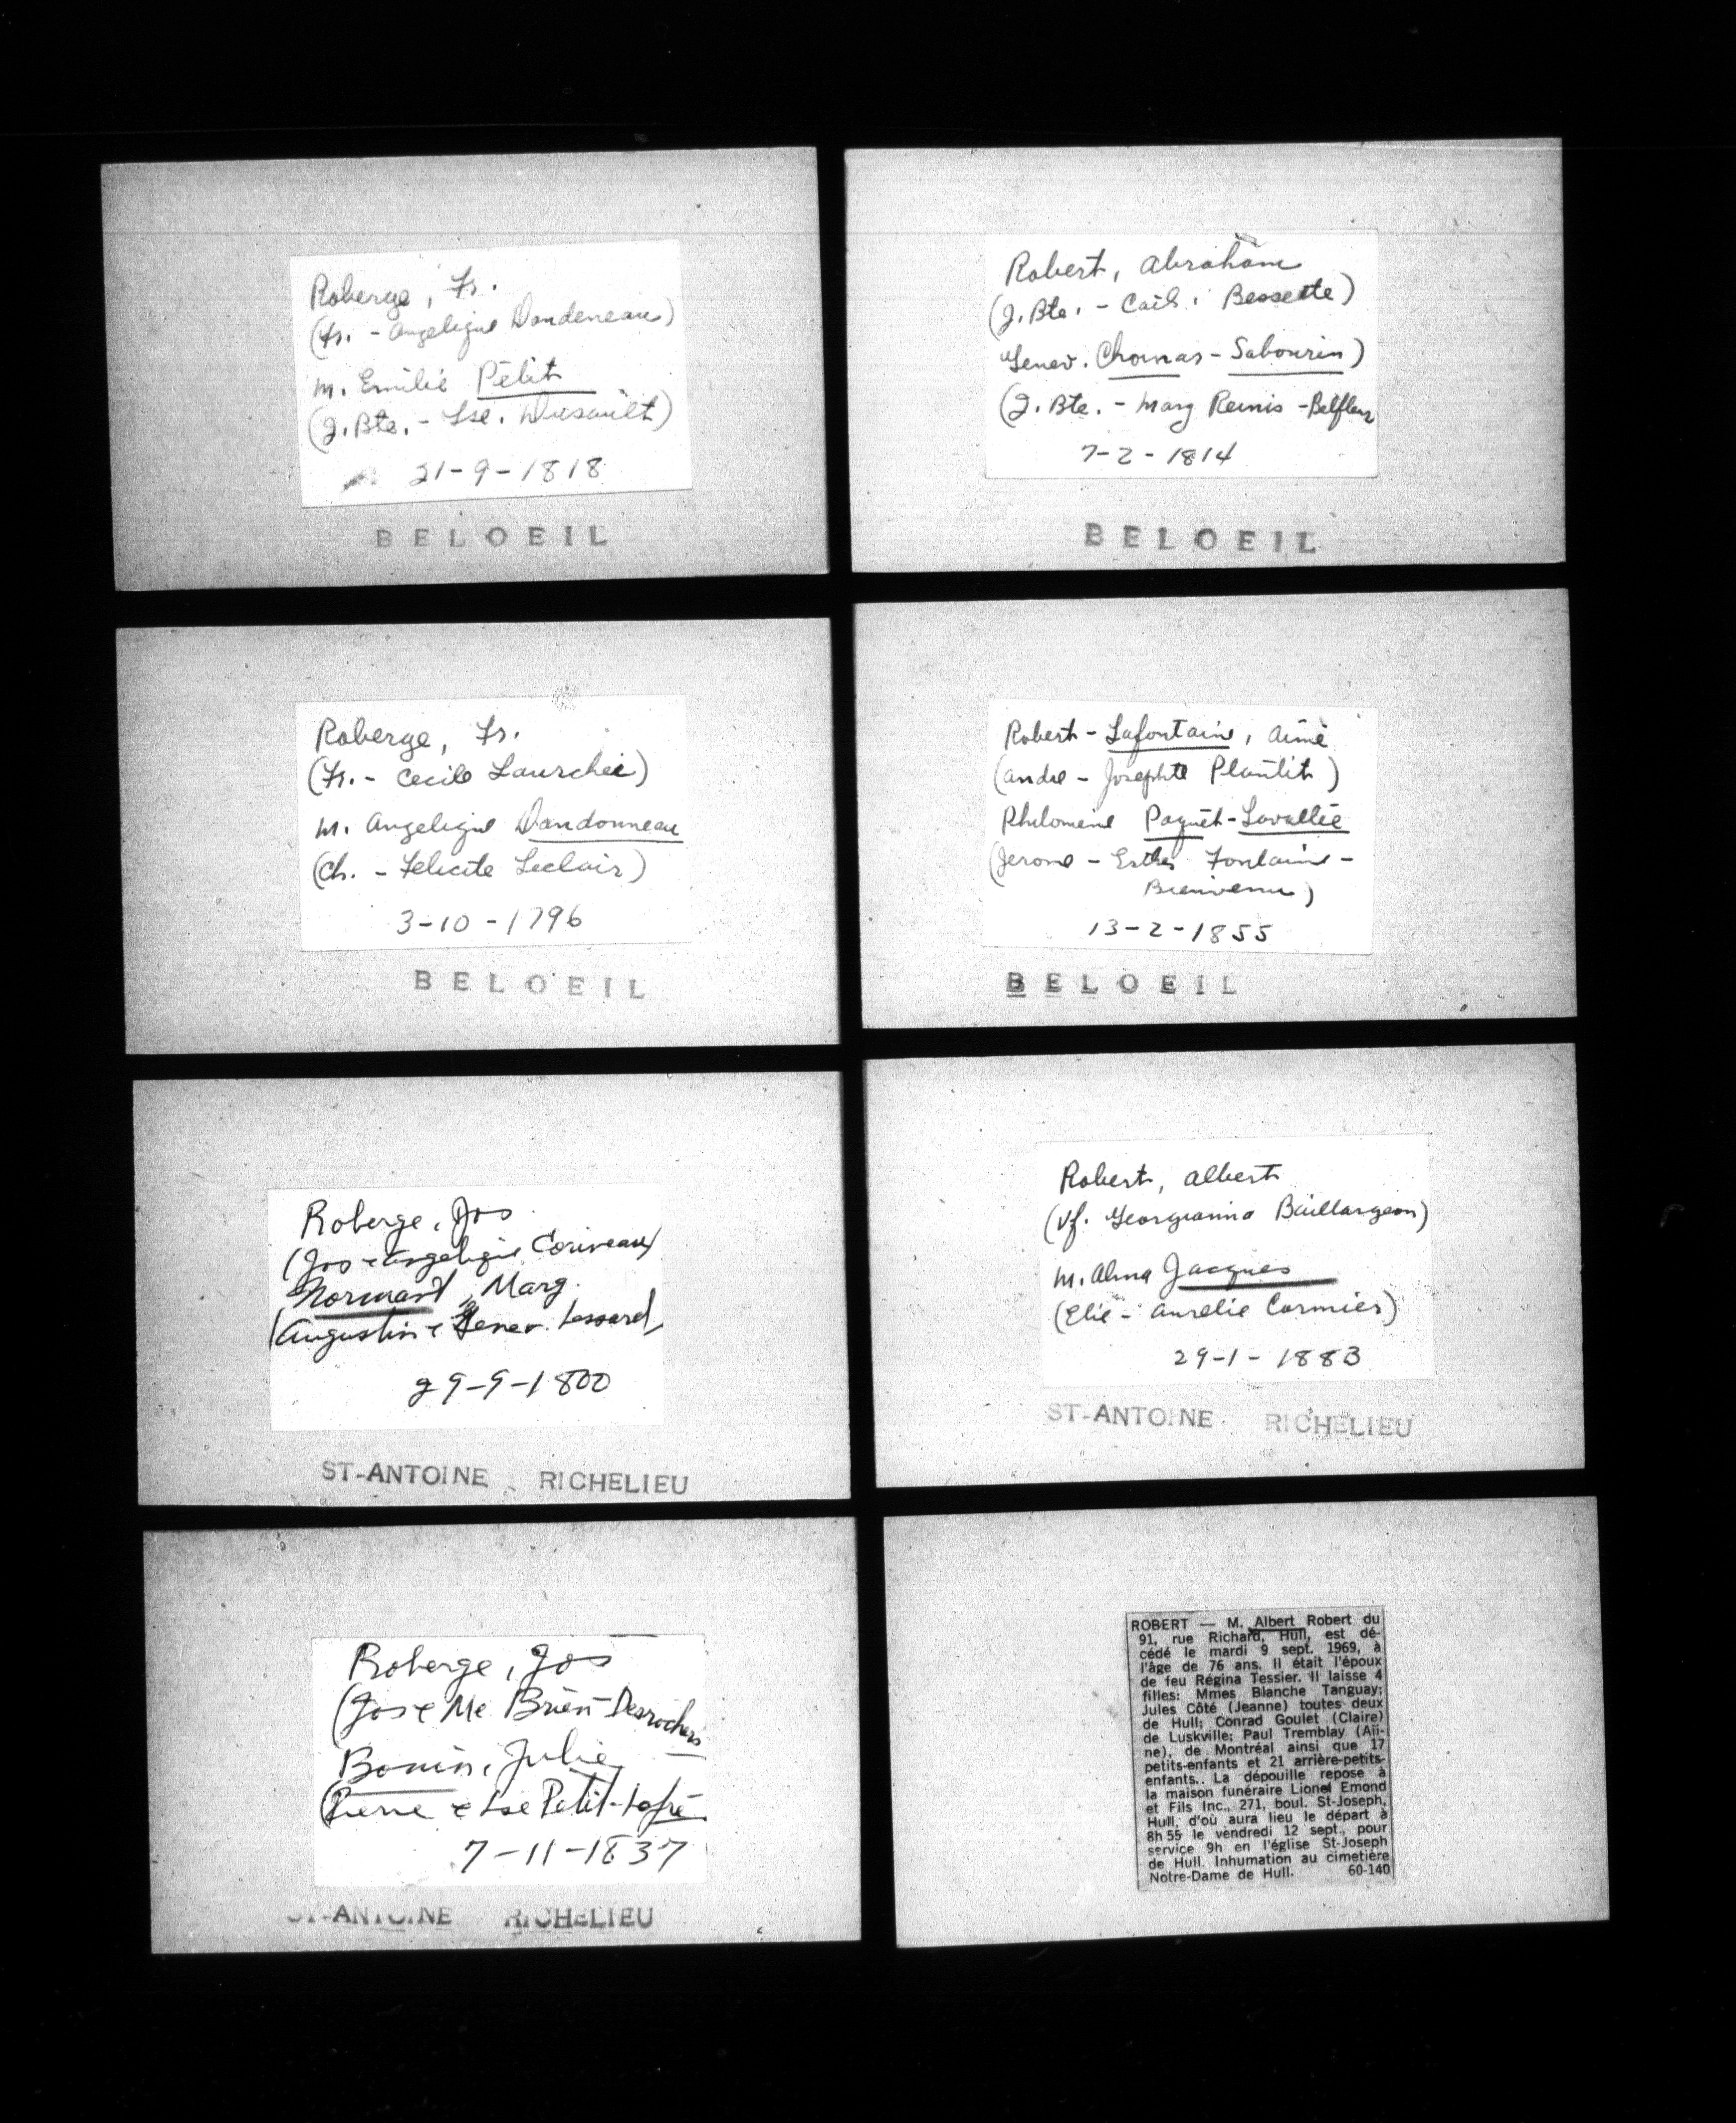 Roberge, Fr.
(Fr. - Angelique Dandeneau)
m. Emilie Petit
(J. Bte. - Lse. Dusault)
21-9-1818
BELOEIL
Roberge, Fr.
(Fr. - Cecile Laurchee)
m. Angelique Dandonneau
(Ch. - Felicite Leclair)
3-10-1796
BELOEIL
Roberge, Jos
(Jos & Angelique Coriveau)
Normant, Marg.
(Augustin & Genev. Lessard)
29-9-1800
ST-ANTOINE RICHELIEU
Roberge, Jos
(Jos & Me Brien-Desrochers
Bonin, Julie
(Pierre & Lse Petit-Lafré
7-11-1837
ST-ANTOINE RICHELIEU
Robert, Abraham
(J. Bte. - Cath. Bessette)
Genev. Chornas - Sabourin)
(J. Bte. - Marg Remis - Belfleur
7-2-1814
BELOEIL
Robert - Lafontaine, Aimé
(Andre - Josephte Plantit)
Philomene Paquet-Lavallée
(Jerome - Esther Fontaine -
Bienvenu)
13-2-1855
BELOEIL
Robert, Albert
(Vf. Georgianna Baillargeon)
m. Alma Jacques
(Elie - Aurelie Cormier)
29-1-1883
ST-ANTOINE RICHELIEU
ROBERT — M. Albert Robert du
91, rue Richard, Hull, est dé-
cédé le mardi 9 sept. 1969, à
l'âge de 76 ans. Il était l'époux
de feu Régina Tessier. Il laisse 4
filles: Mmes Blanche Tanguay;
Jules Côté (Jeanne) toutes deux
de Hull; Conrad Goulet (Claire)
de Luskville; Paul Tremblay (Ali-
ne), de Montréal ainsi que 17
petits-enfants et 21 arrière-petits-
enfants.. La dépouille repose à
la maison funéraire Lionel Emond
et Fils Inc., 271, boul. St-Joseph,
Hull, d'où aura lieu le départ à
8h 55 le vendredi 12 sept., pour
service 9h en l'église St-Joseph
de Hull. Inhumation au cimetière
Notre-Dame de Hull. 60-140